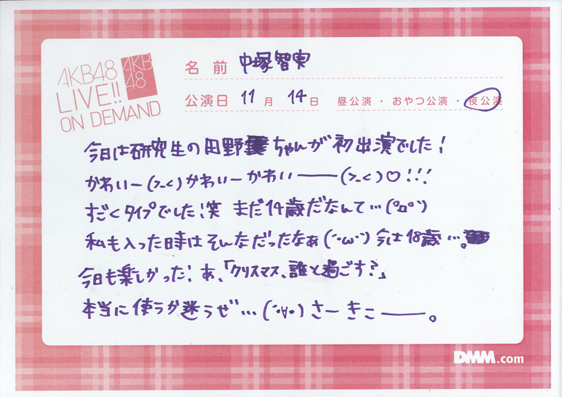 AKB48
LIVE!!
ON DEMAND
AKB
48
名前 中塚智実
公演日 11月 14日 昼公演・おやつ公演・夜公演
今日は研究生の田野ちゃんが初出演でした!
かわいー(>_<)かわいーかわいー――(>_<)♡!!!
すごくタイプでした笑 まだ14歳だなんて…(°□°)
私も入った時はそんなだったなぁ(´・ω・`)今は18歳…。
今日も楽しかった!あ、「クリスマス、誰と過ごす?」
本当に使うか迷うぜ…(´・∀・`)さーきこ――。
DMM.com